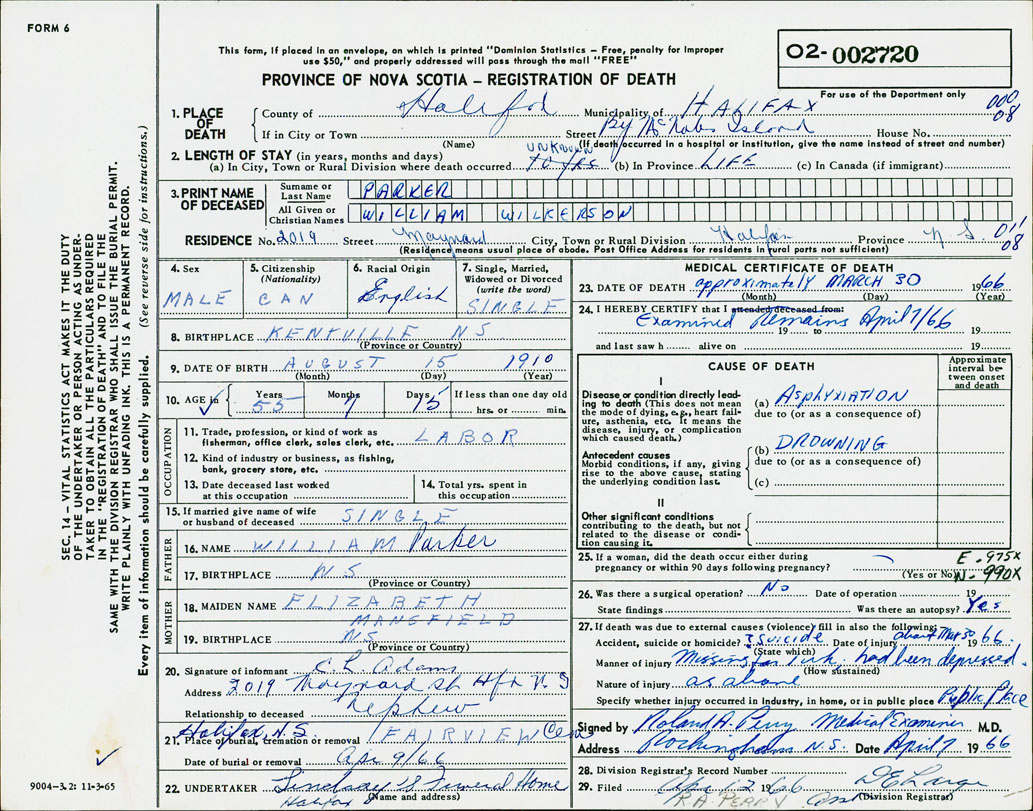 FORM 6
This form, if placed in an envelope, on which is printed "Dominion Statistics – Free, penalty for improper
use $50," and properly addressed will pass through the mail "FREE"
02-002720
PROVINCE OF NOVA SCOTIA – REGISTRATION OF DEATH
For use of the Department only
000
08
1. PLACE OF DEATH
County of Halifax Municipality of HALIFAX
If in City or Town Street By McNabs Island House No.
(Name) (If death occurred in a hospital or institution, give the name instead of street and number)
2. LENGTH OF STAY (in years, months and days) UNKNOWN
(a) In City, Town or Rural Division where death occurred 10 yrs (b) In Province LIFE (c) In Canada (if immigrant)
3. PRINT NAME OF DECEASED
Surname or Last Name PARKER
All Given or Christian Names WILLIAM WILKERSON
RESIDENCE No. 2019 Street Maynard City, Town or Rural Division Halifax Province N S. 011
08
(Residence means usual place of abode. Post Office Address for residents in rural parts not sufficient)
4. Sex MALE
5. Citizenship (Nationality) CAN
6. Racial Origin English
7. Single, Married, Widowed or Divorced (write the word) SINGLE
8. BIRTHPLACE KENTVILLE NS
(Province or Country)
9. DATE OF BIRTH AUGUST 15 1910
(Month) (Day) (Year)
10. AGE in Years 55 Months 7 Days 15 If less than one day old
hrs. or min.
OCCUPATION
11. Trade, profession, or kind of work as
fisherman, office clerk, sales clerk, etc. LABOR
12. Kind of industry or business, as fishing,
bank, grocery store, etc.
13. Date deceased last worked
at this occupation
14. Total yrs. spent in
this occupation
15. If married give name of wife
or husband of deceased SINGLE
FATHER
16. NAME WILLIAM Parker
17. BIRTHPLACE NS
(Province or Country)
MOTHER
18. MAIDEN NAME ELIZABETH
MANSFIELD
19. BIRTHPLACE NS
(Province or Country)
20. Signature of informant C. L. Adams
Address 2019 Maynard St Hfx N.S
Relationship to deceased Nephew
Halifax, N.S.
21. Place of burial, cremation or removal FAIRVIEW Cem
Date of burial or removal Apr 9/66
22. UNDERTAKER Lindsay's Funeral Home
Halifax (Name and address)
MEDICAL CERTIFICATE OF DEATH
23. DATE OF DEATH approximately MARCH 30 1966
(Month) (Day) (Year)
24. I HEREBY CERTIFY that I attended deceased from:
Examined Remains April 7/66
19 to 19
and last saw h alive on 19
CAUSE OF DEATH
Approximate interval between onset and death
I
Disease or condition directly leading to death (This does not mean the mode of dying, e.g., heart failure, asthenia, etc. It means the disease, injury, or complication which caused death.)
(a) ASPHYXIATION
due to (or as a consequence of)
Antecedent causes
Morbid conditions, if any, giving rise to the above cause, stating the underlying condition last.
(b) DROWNING
due to (or as a consequence of)
(c)
II
Other significant conditions
contributing to the death, but not related to the disease or condition causing it.
25. If a woman, did the death occur either during
pregnancy or within 90 days following pregnancy?
(Yes or No)
E.975X
N.990X
26. Was there a surgical operation? No Date of operation 19
State findings Was there an autopsy? Yes
27. If death was due to external causes (violence) fill in also the following:
Accident, suicide or homicide? ? suicide Date of injury about Mar 30 1966
(State which)
Manner of injury Missing for 1 wk. had been depressed.
(How sustained)
Nature of injury as above
Specify whether injury occurred in industry, in home, or in public place Public Place
Signed by Roland A. Perry Medical Examiner M.D.
Address Rockingham N.S. Date April 7 1966
28. Division Registrar's Record Number
29. Filed 1966
R.A. PERRY
(Division Registrar)
SEC. 14 – VITAL STATISTICS ACT MAKES IT THE DUTY
OF THE UNDERTAKER OR PERSON ACTING AS UNDER-
TAKER TO OBTAIN ALL THE PARTICULARS REQUIRED
IN THE "REGISTRATION OF DEATH" AND TO FILE THE
SAME WITH THE DIVISION REGISTRAR WHO SHALL ISSUE THE BURIAL PERMIT.
WRITE PLAINLY WITH UNFADING INK. THIS IS A PERMANENT RECORD.
Every item of information should be carefully supplied. (See reverse side for instructions.)
9004-3.2: 11-3-65